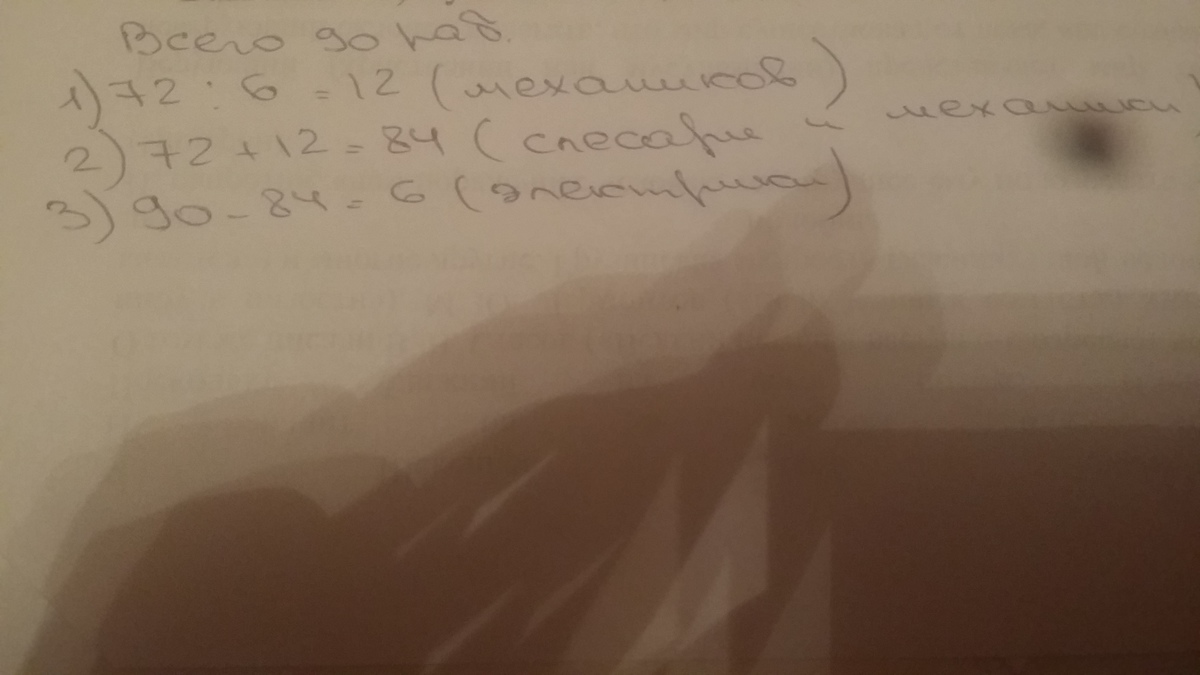 Всего 90 раб.
1) 72 : 6 = 12 (механиков)
2) 72 + 12 = 84 (слесари и механики)
3) 90 - 84 = 6 (электрики)